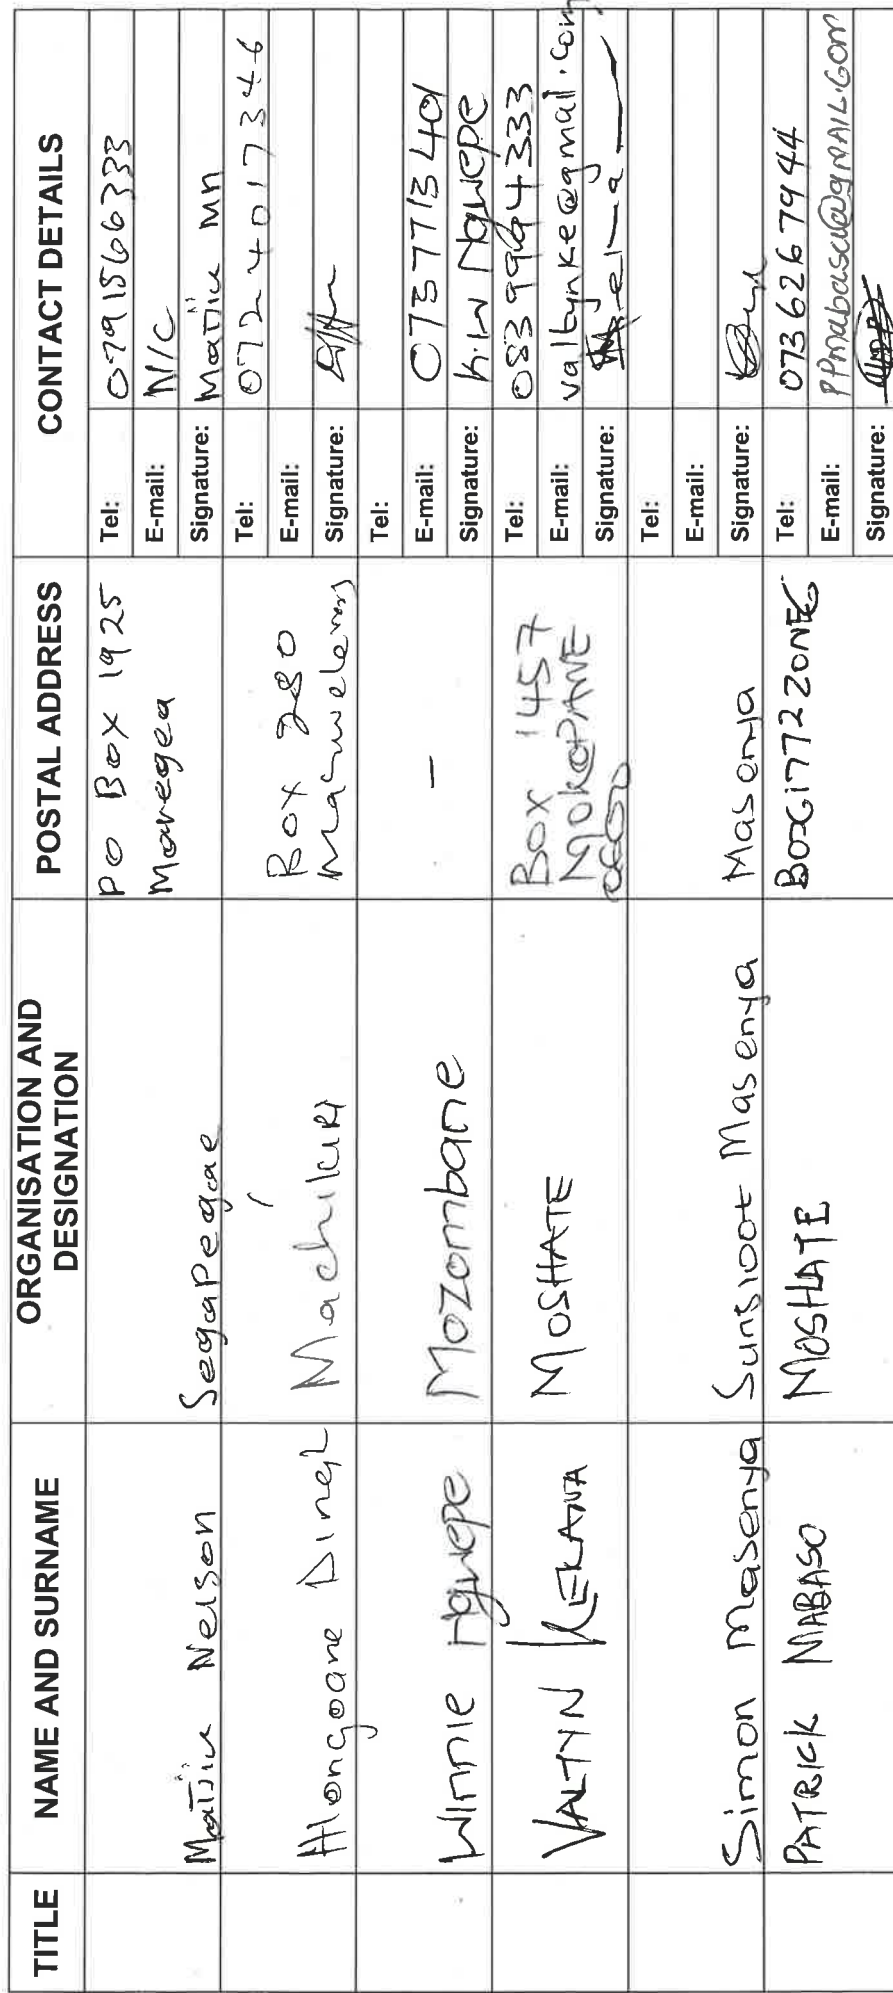 TITLE
NAME AND SURNAME
ORGANISATION AND DESIGNATION
POSTAL ADDRESS
CONTACT DETAILS
Nelson
Segapegae
PO Box 1925
Tel: 0791566333
E-mail: N/C
Signature: Mn
Hlongoane
Machikiri
Box 280
Tel: 0724017346
E-mail:
Signature:
Winnie Ngwepe
Mozombane
-
Tel:
E-mail: 073771340
Signature: K.W Ngwepe
VALTYN KEKANA
MOSHATE
Box 1457
MOKOPANE
Tel: 0839964333
E-mail: valtynke@gmail.com
Signature:
Simon Masenya
Sunsloot Masenya
Masenya
Tel:
E-mail:
Signature:
PATRICK MABASO
MOSHATE
Tel: 0736267944
E-mail: PPmabaso@gMAIL.COM
Signature: